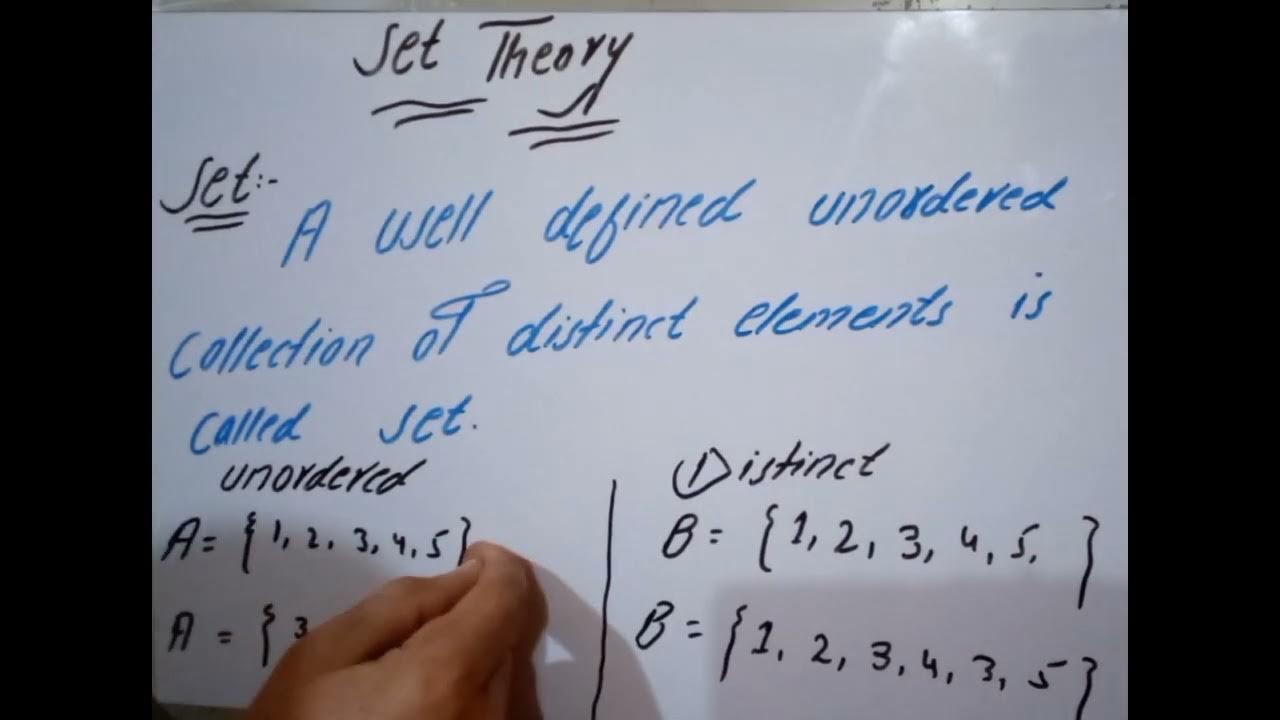 Set Theory
Set:-
A well defined unordered
collection of distinct elements is
called set.
unordered
A = {1, 2, 3, 4, 5}
A = {3
Distinct
B = {1, 2, 3, 4, 5, }
B = {1, 2, 3, 4, 3, 5}